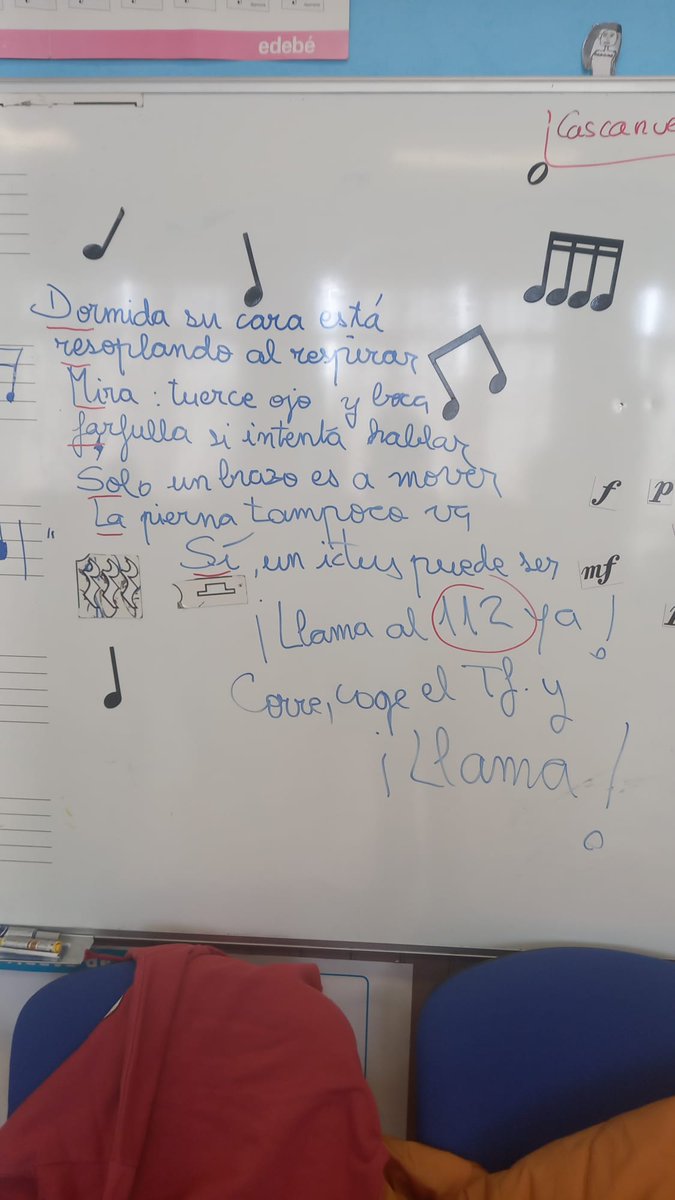 edebé
¡Cascanue
Dormida su cara está
resoplando al respirar
Mira: tuerce ojo y boca
farfulla si intenta hablar
Solo un brazo es a mover
La pierna tampoco va
Sí, un ictus puede ser
¡Llama al 112 ya!
Corre, coge el Tf. y
¡Llama!
f
p
mf